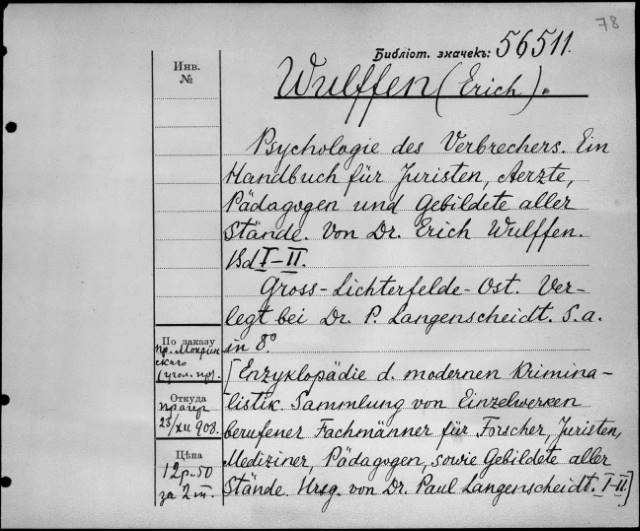 78
Библіот. значекъ: 56511.
Инв.
№
Wulffen (Erich).
Psychologie des Verbrechers. Ein
Handbuch für Juristen, Aerzte,
Pädagogen und Gebildete aller
Stände. Von Dr. Erich Wulffen.
Bd I-II.
Gross-Lichterfelde-Ost. Ver-
legt bei Dr. P. Langenscheidt. S.a.
in 8º.
[Enzyklopädie d. modernen Krimina-
listik. Sammlung von Einzelwerken
berufener Fachmänner für Forscher, Juristen,
Mediziner, Pädagogen, sowie Gebildete aller
Stände. Hrsg. von Dr. Paul Langenscheidt. I-II]
По заказу
пр. Мокрин
скаго
(угол. пр.).
Откуда
23/XII 908.
Цѣна
12р.50
за 2 т.